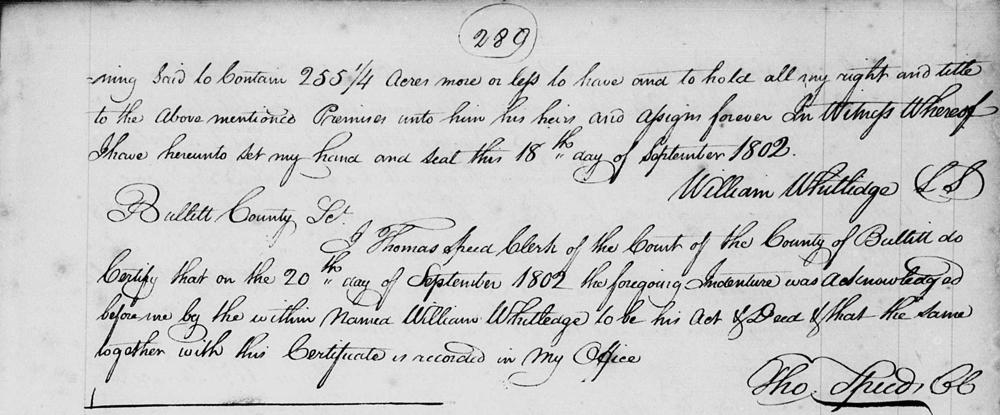 289
-ning Said to Contain 255 1/4 Acres more or less to have and to hold all my right and title
to the Above mentioned Premises unto him his heirs and assigns forever In Witness Whereof
I have hereunto set my hand and seal this 18th day of September 1802.
William Whitledge LS
Bullitt County Sct.
I Thomas Speed Clerk of the Court of the County of Bullitt do
Certify that on the 20th day of September 1802 the foregoing Indenture was Acknowledged
before me by the within Named William Whitledge to be his Act & Deed & that the same
together with this Certificate is recorded in My Office
Tho. Speed CC